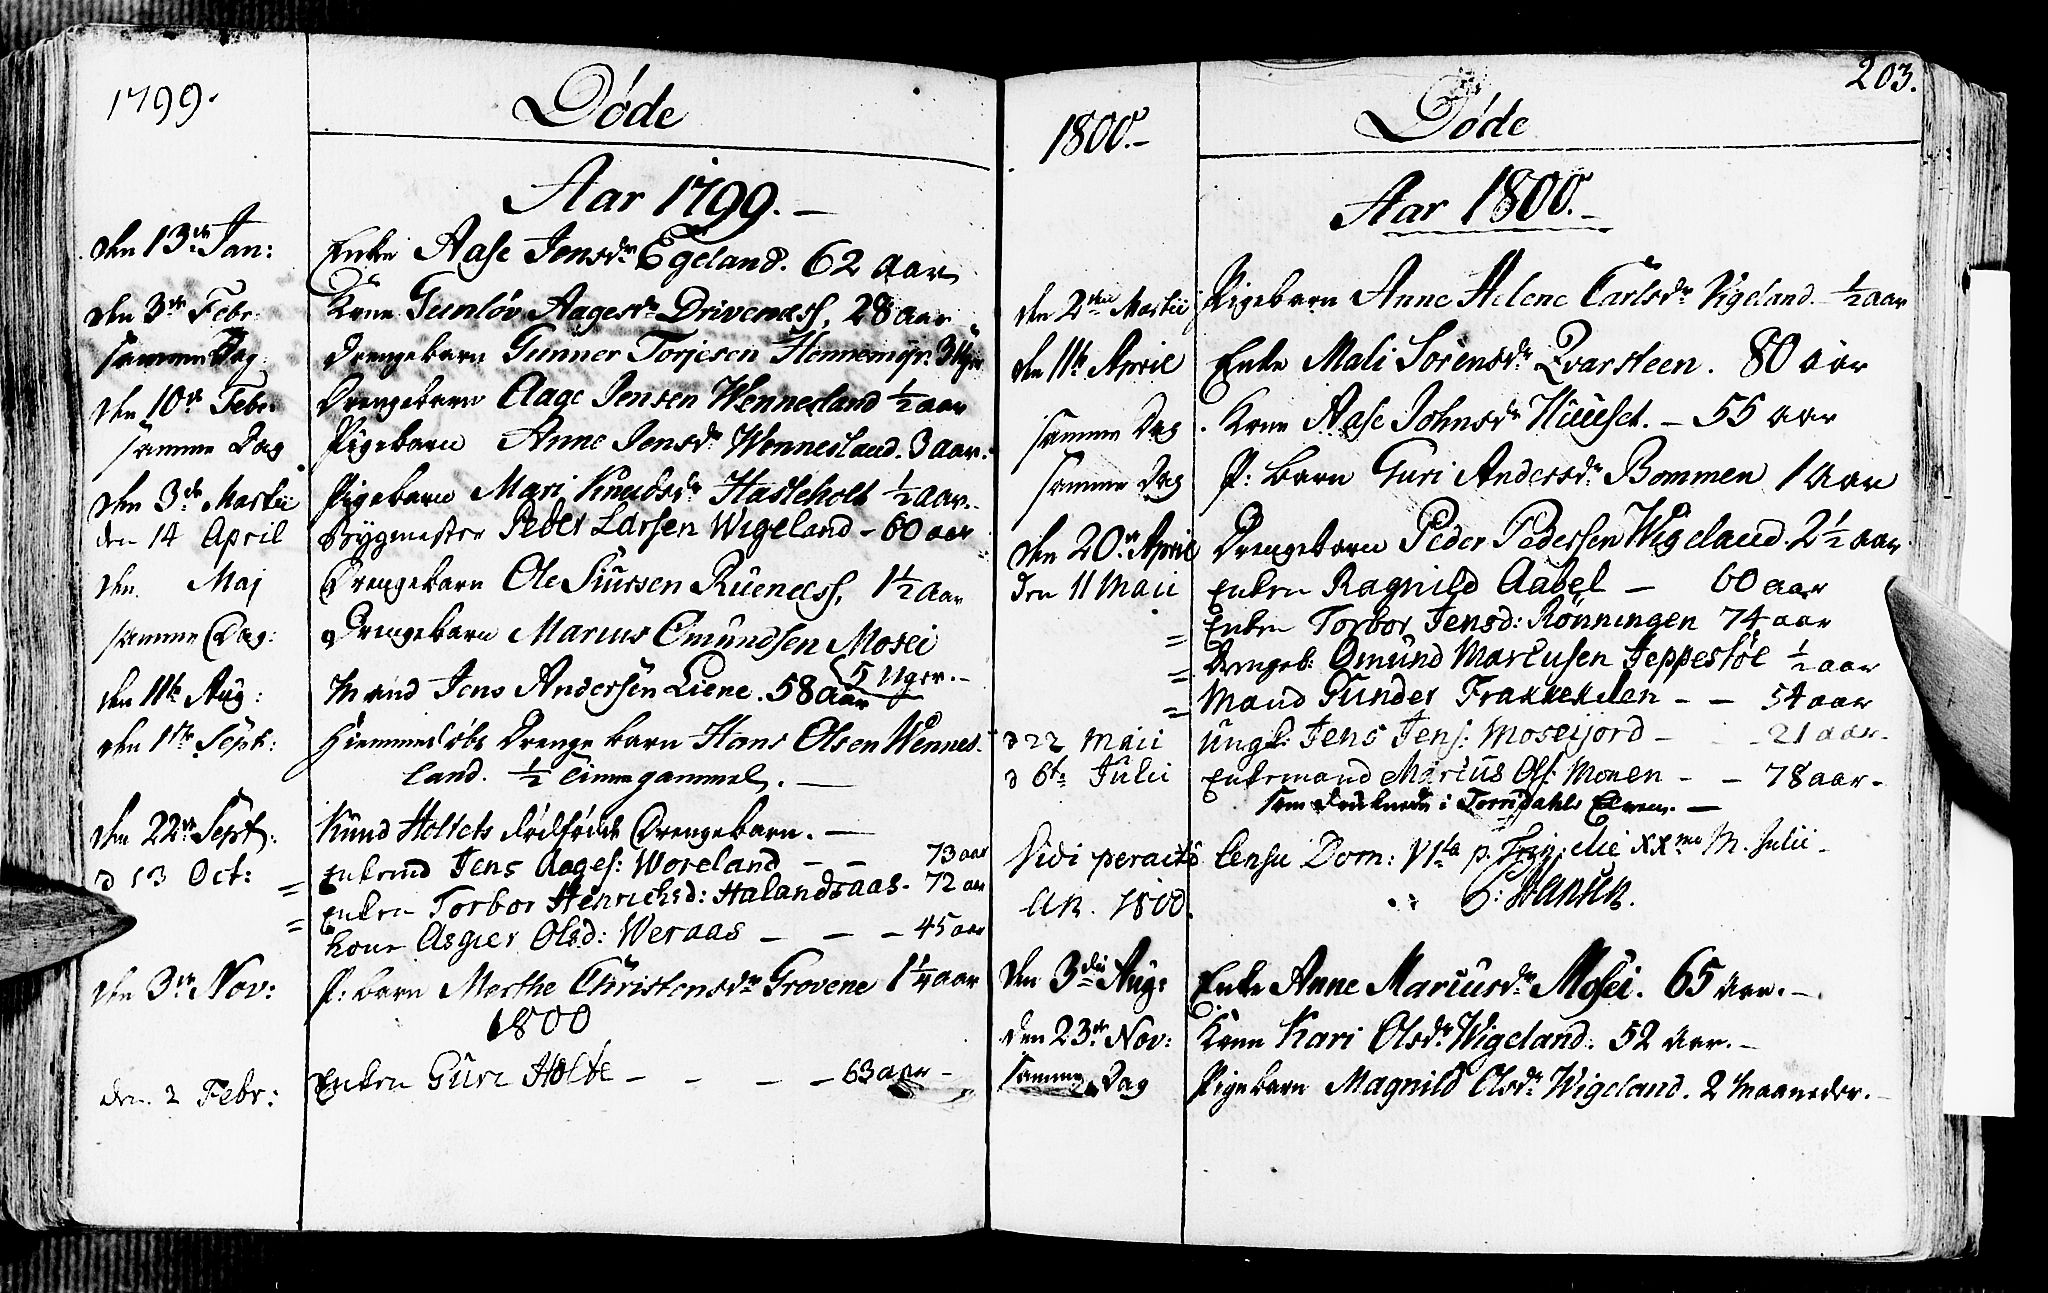 1799.
Døde
Aar 1799. –
den 13de Jan: Enke Aase Jensdr Egeland. 62 aar
den 3de Febr: Kone Gunløv Aagesdr Drivenæss. 28 aar
samme Dag Drengebarn Gunner Torjesen Hennemyr. 3 Uger
den 10de Febr: Drengebarn Aage Jensen Wennesland ½ aar
samme Dag Pigebarn Anne Jensdr Wennesland. 3 aar.
den 3de Martii Pigebarn Mari Knudsdr Hasteholt ½ aar.
den 14 April Bygmester Peder Larsen Wigeland – 60 aar
den Maj Drengebarn Ole Siursen Ruenæss. 1½ aar
samme Dag: Drengebarn Marcus Omundsen Mosei
5 Uger. –
den 11te Aug: Mand Jens Andersen Liene. 58 aar
den 1ste Sept: Hiemmedøbt Drenge barn Hans Olsen Wennes-
land. ½ Time gammel. –
den 22de Sept: Knud Holtets dødfødde Drengebarn. –
d 13 Oct: Enkemd Jens Aages: Woreland – – 73 aar
= Enken Torbor Henrichsd: Halandsaas. 72 aar
= kone Asgier Olsd: Weraas – – – 45 aar
den 3de Nov: P: barn Marthe Christensdr Grovene 1¼ aar
1800
den 2 Febr: Enken Guri Holte – – – – 63 aar –
203.
1800. –
Døde
Aar 1800. –
den 2den Martii Pigebarn Anne Helene Carlsdr Vigeland. ½ aar
den 11te April Enke Mali Sørensdr Qvarsteen. 80 aar
samme Dag Kone Aase Johnsdr Huuset. – 55 aar
samme Dag P: barn Guri Andersdr Bommen 1 aar
den 20de April Drengebarn Peder Pedersen Wigeland. 2½ aar
den 11 Maii Enken Ragnild Aabel – 60 aar
= Enken Torbor Jensd: Rønningen 74 aar
= Drengeb: Omund Marcusen Jeppestøl ½ aar
= Mand Gunder Frakkekilen – – 54 aar
d 22 Maii Ungk: Jens Jens: Moseijord – – 21 aar –
d 6te Julii Enkemand Marcus Ols: Monen – – 78 aar –
som druknede i Torridahls Elven. –
Vidi peracto Censu Dom: VIta p. Trin: die XXma M. Julii –
An. 1800. P: Hansen.
den 3die Aug: Enke Anne Marcusdr Mosei. 65 aar. –
den 23de Nov: Kone Kari Olsdr Wigeland. 52 aar. –
samme Dag Pigebarn Magnild Olsdr Wigeland. 2 Maaneder. –